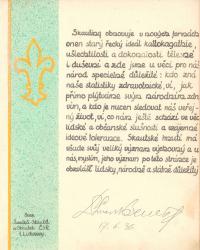 Skauting obnovuje v nových formách
onen starý řecký ideál kallokagathie,
ušlechtilosti a dokonalosti tělesné
i duševní a zde jsme u věci pro náš
národ speciálně důležité: kdo zná
naše statistiky zdravotnické ví, jak
přímo plýtváme svým národním zdra-
vím, a kdo je nucen sledovat náš veřej-
ný život, ví, co nám ještě schází ve věci
lidské a občanské slušnosti a vzájemné
ideové tolerance. Skautské hnutí má
všude svůj veliký význam výchovný a u
nás, myslím, jeho význam po této stránce je
obzvlášť lidsky, národně a státně důležitý
17.6.36
Svaz
Junáků Skautů
a Skautek RČS